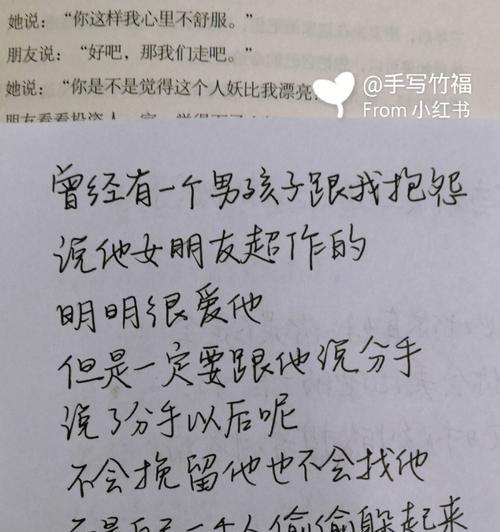 她说：“你这样我心里不舒服。”
朋友说：“好吧，那我们走吧。”
她说：“你是不是觉得这个人妖比我漂亮？
@手写竹福
From 小红书
朋友看看投资人
曾经有一个男孩子跟我抱怨
说他女朋友超作的
明明很爱他
但是一定要跟他说分手
说了分手以后呢
不会挽留他也不会找他
而是自己一个人偷偷躲起来